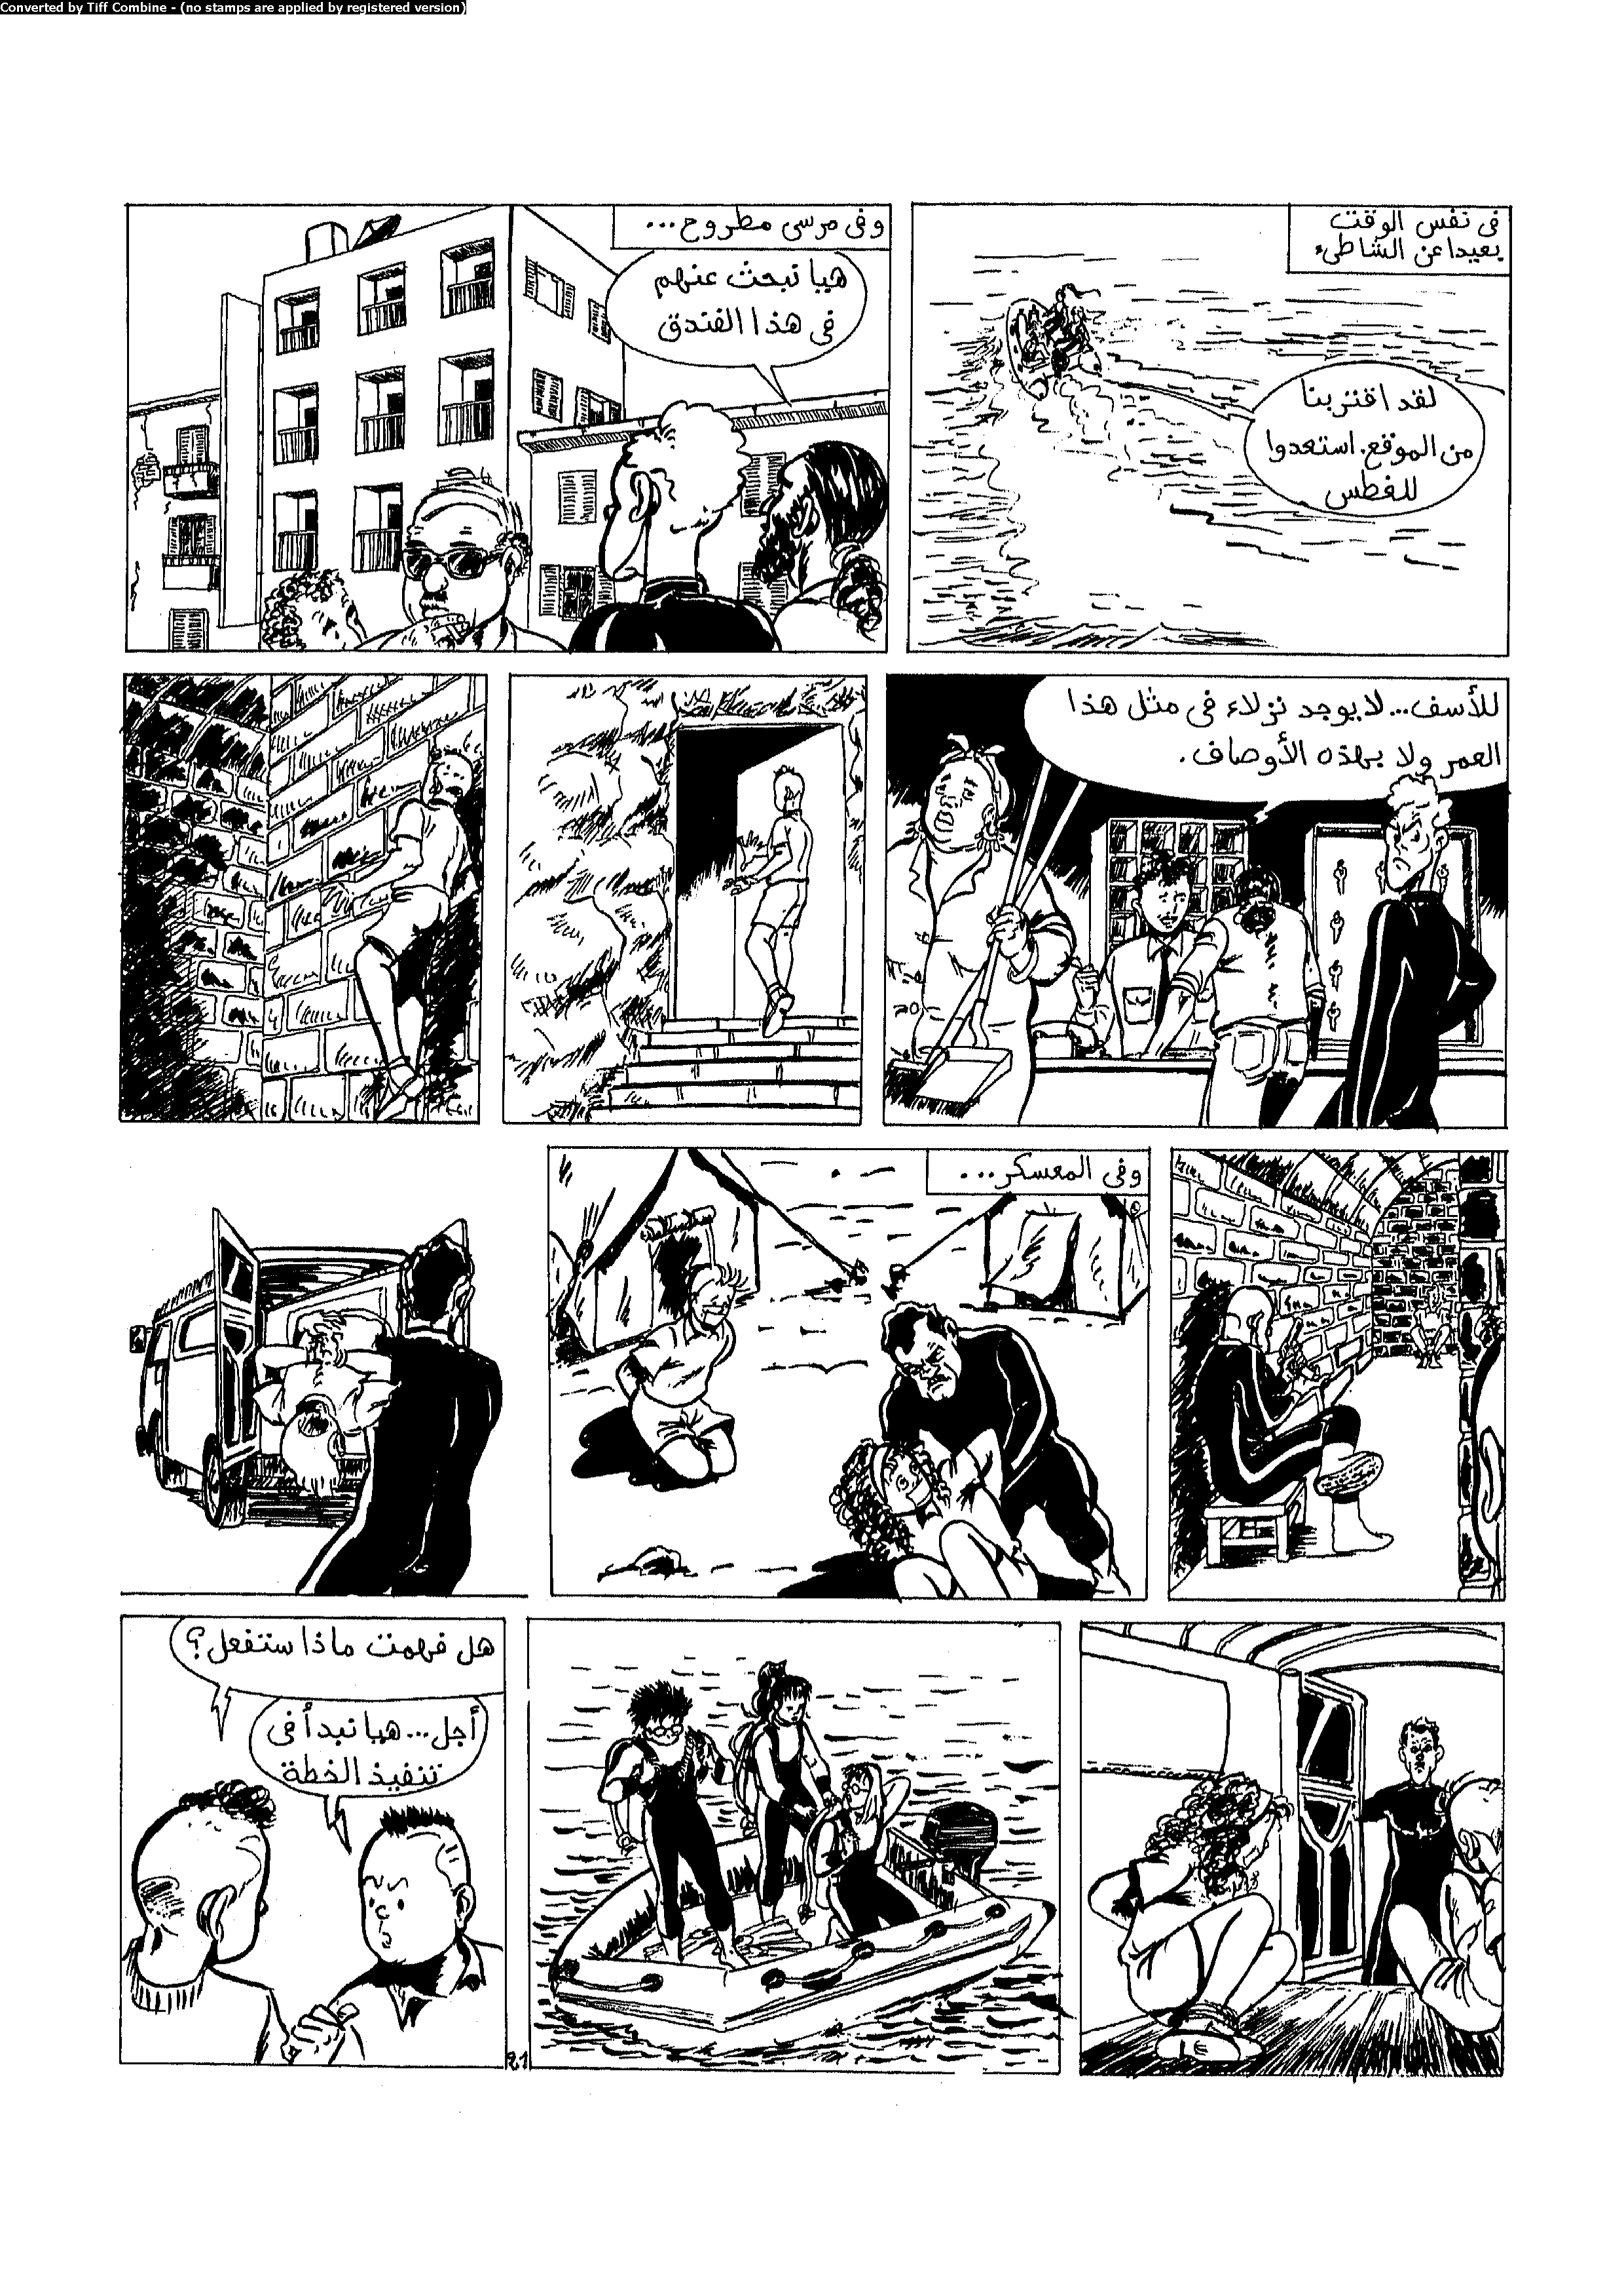 Converted by Tiff Combine - (no stamps are applied by registered version)
فى نفس الوقت
بعيدا عن الشاطىء
لقد اقتربنا
من الموقع. استعدوا
للغطس
وفى مرسى مطروح...
هيا نبحث عنهم
فى هذا الفندق
للأسف... لا يوجد نزلاء فى مثل هذا
العمر ولا بهذه الأوصاف.
وفى المعسكر...
هل فهمت ماذا ستفعل؟
أجل... هيا نبدأ فى
تنفيذ الخطة
21